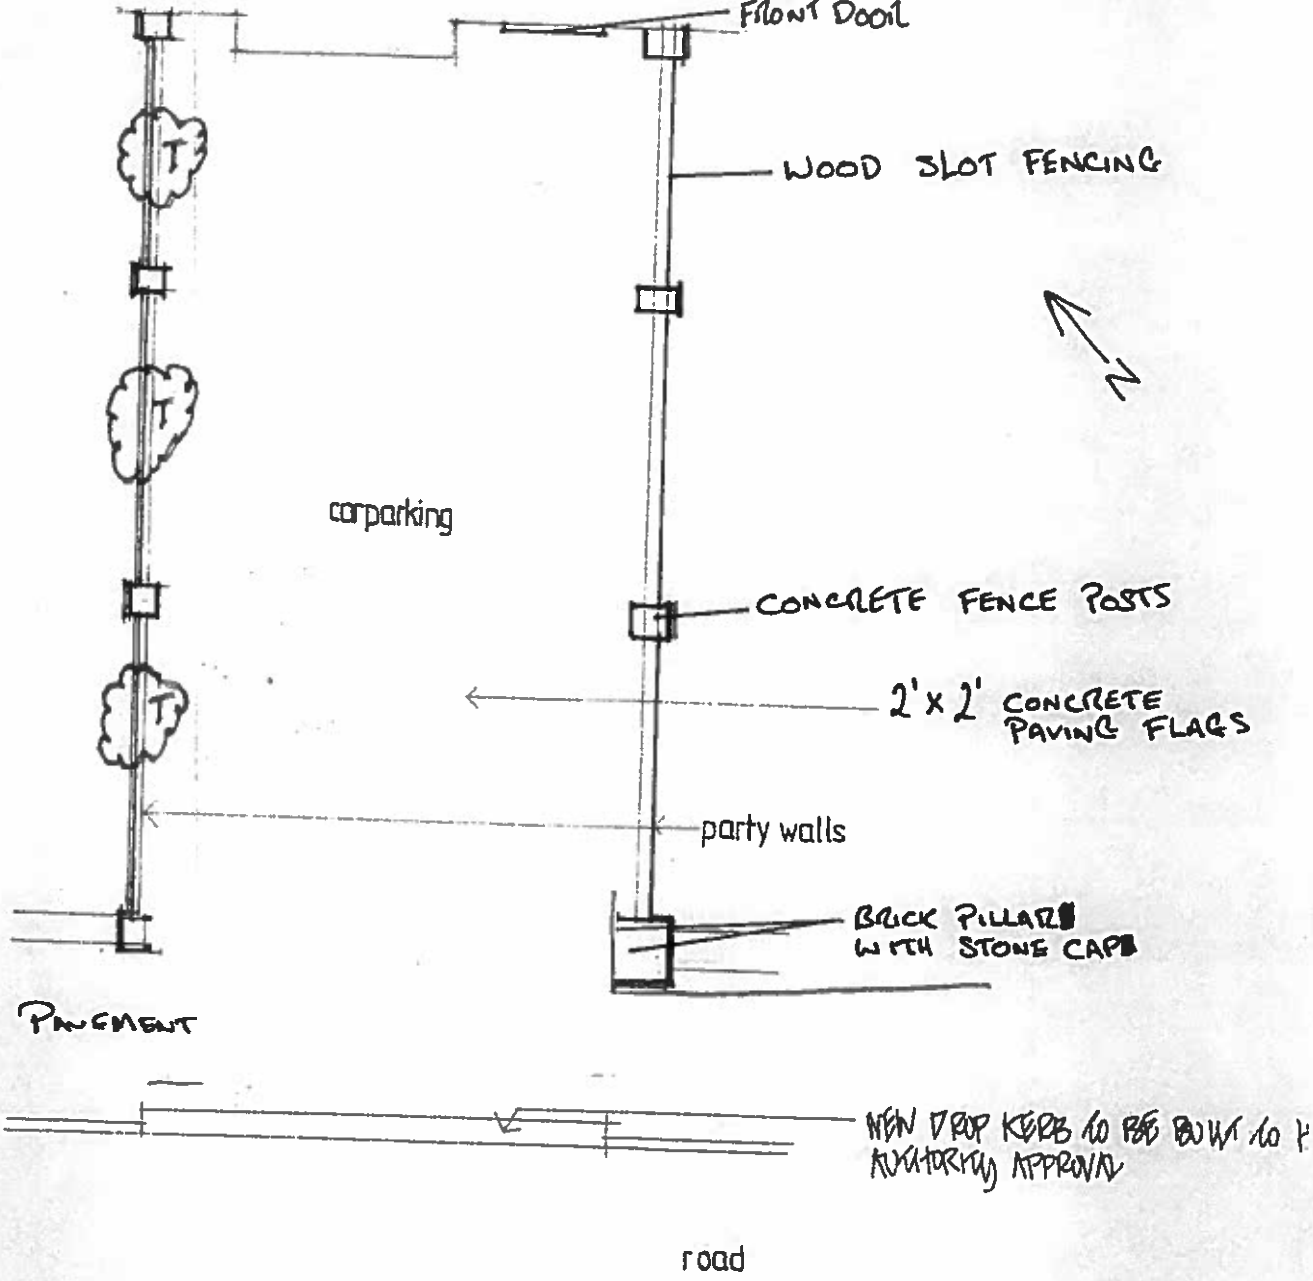 FRONT DOOR
T
WOOD SLOT FENCING
N
T
carparking
CONCRETE FENCE POSTS
2' x 2' CONCRETE
PAVING FLAGS
T
party walls
BRICK PILLAR
WITH STONE CAP
PAVEMENT
NEW DROP KERB TO BE BUILT TO
AUTHORITY APPROVAL
road